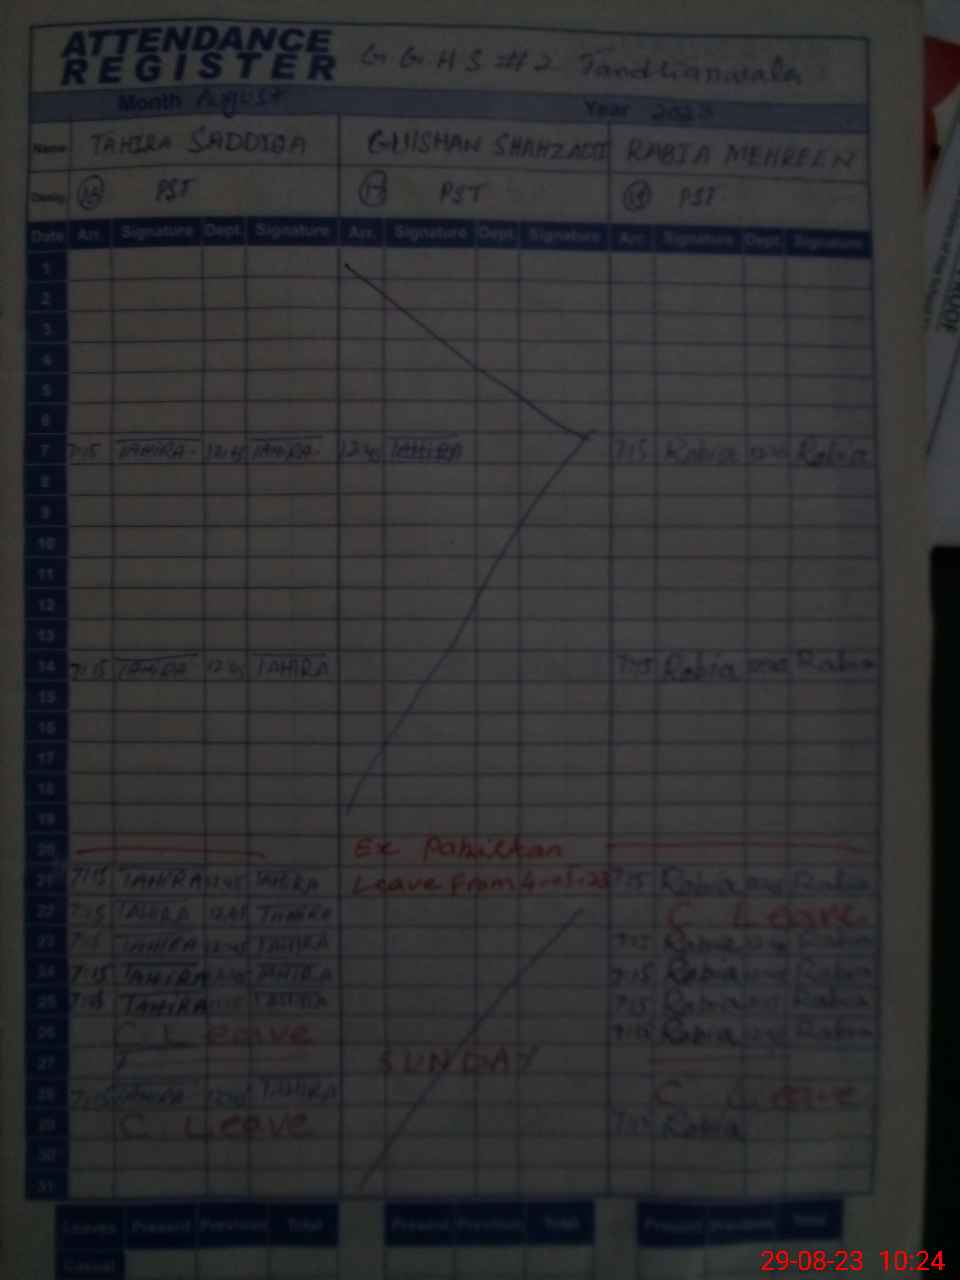 ATTENDANCE REGISTER G.G.H.S #2 Tandlianwala
Month August Year 2023
Name TAHIRA SADDIQA GULSHAN SHAHZADI RABIA MEHREEN
Desig: PST PST PST
Date Arr. Signature Dept. Signature Arr. Signature Dept. Signature Arr. Signature Dept. Signature
1
2
3
4
5
6
7 7:15 TAHIRA 12:45 TAHIRA 12:45 TAHIRA 7:15 Rabia 12:45 Rabia
8
9
10
11
12
13
14 7:15 TAHIRA 12:45 TAHIRA 7:15 Rabia 12:45 Rabia
15
16
17
18
19
20 Ex Pakistan
21 7:15 TAHIRA 12:45 TAHIRA Leave From 7:15 Rabia 12:45 Rabia
22 7:15 TAHIRA 12:45 TAHIRA C Leave
23 7:15 TAHIRA 12:45 TAHIRA 7:15 Rabia 12:45 Rabia
24 7:15 TAHIRA 12:45 TAHIRA 7:15 Rabia 12:45 Rabia
25 7:15 TAHIRA TAHIRA 7:15 Rabia Rabia
26 C Leave 7:15 Rabia 12:45 Rabia
27 SUNDAY
28 7:15 TAHIRA 12:45 TAHIRA C Leave
29 C Leave 7:15 Rabia
30
31
Leaves Present Previous Total Present Previous Total Present Previous Total
Casual
29-08-23 10:24